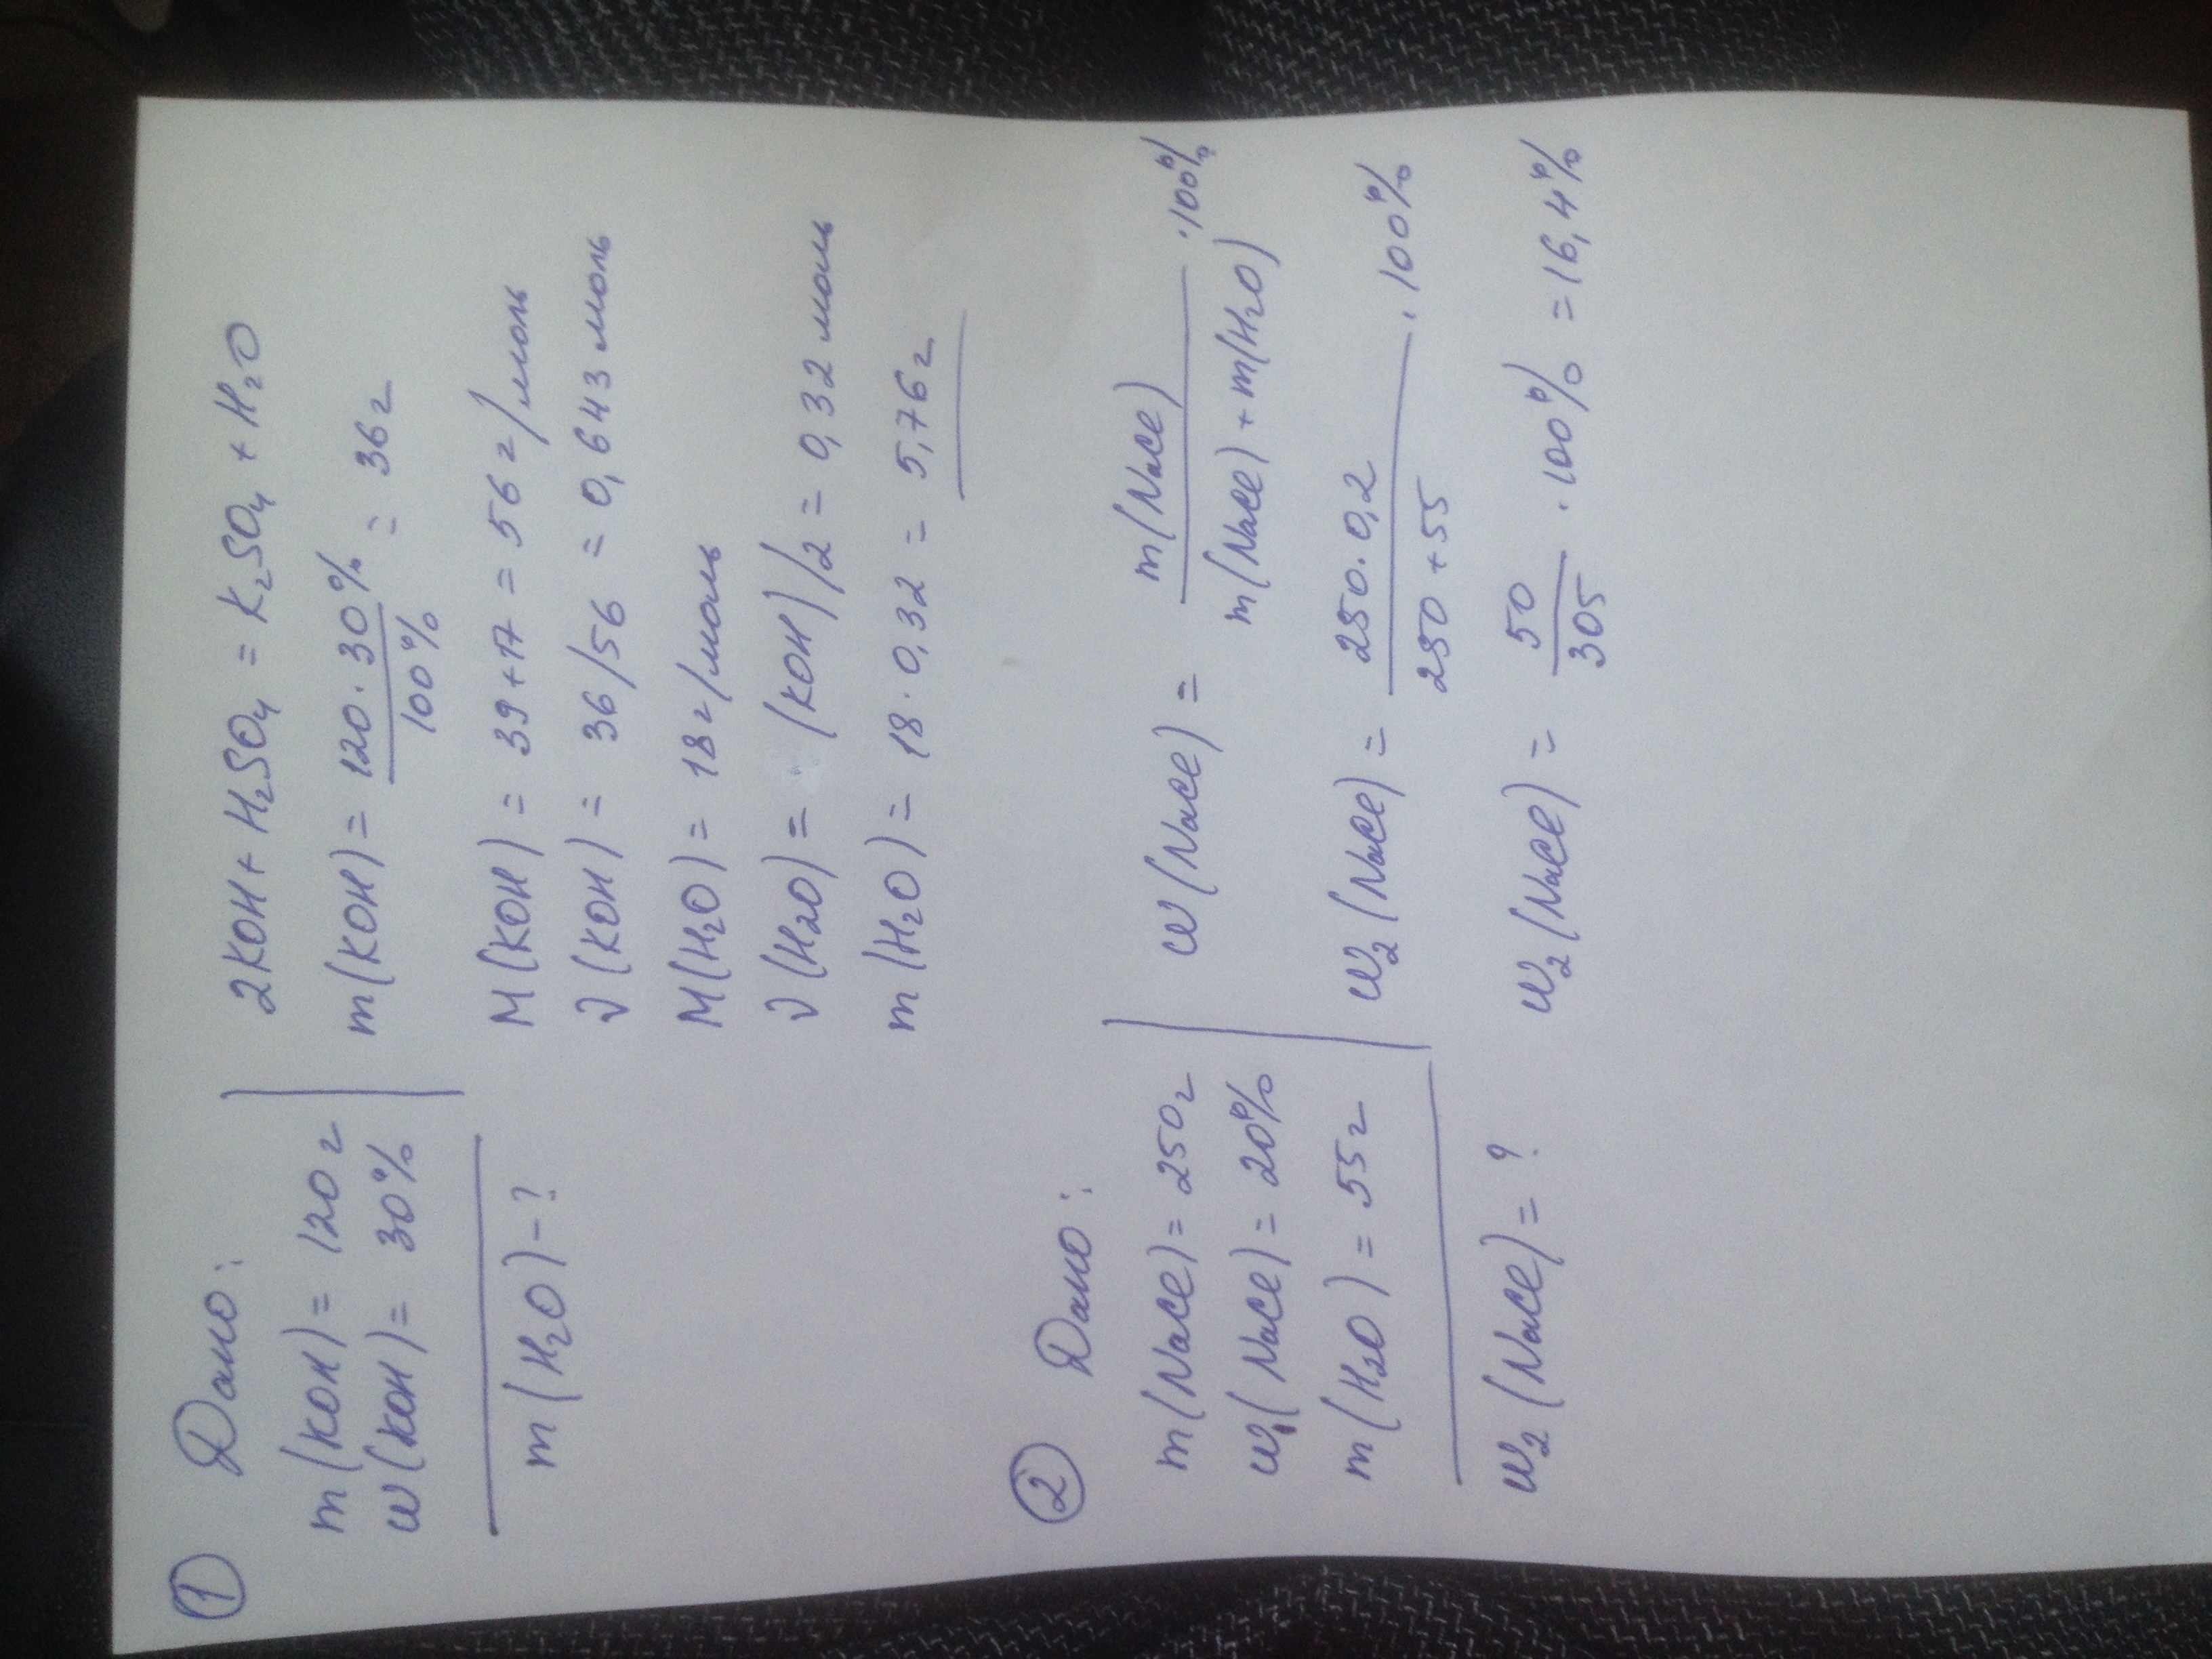 ① Дано:
m(KOH) = 120 г
w(KOH) = 30%
m(H₂O) - ?
2KOH + H₂SO₄ = K₂SO₄ + H₂O
m(KOH) = 120 · 30% / 100% = 36 г
M(KOH) = 39 + 17 = 56 г/моль
ν(KOH) = 36/56 = 0,643 моль
M(H₂O) = 18 г/моль
ν(H₂O) = (KOH)/2 = 0,32 моль
m(H₂O) = 18 · 0,32 = 5,76 г
② Дано:
m(NaCl) = 250 г
w₁(NaCl) = 20%
m(H₂O) = 55 г
w₂(NaCl) = ?
w(NaCl) = m(NaCl) / m(NaCl) + m(H₂O) · 100%
w₂(NaCl) = 250 · 0,2 / 250 + 55 · 100%
w₂(NaCl) = 50 / 305 · 100% = 16,4%